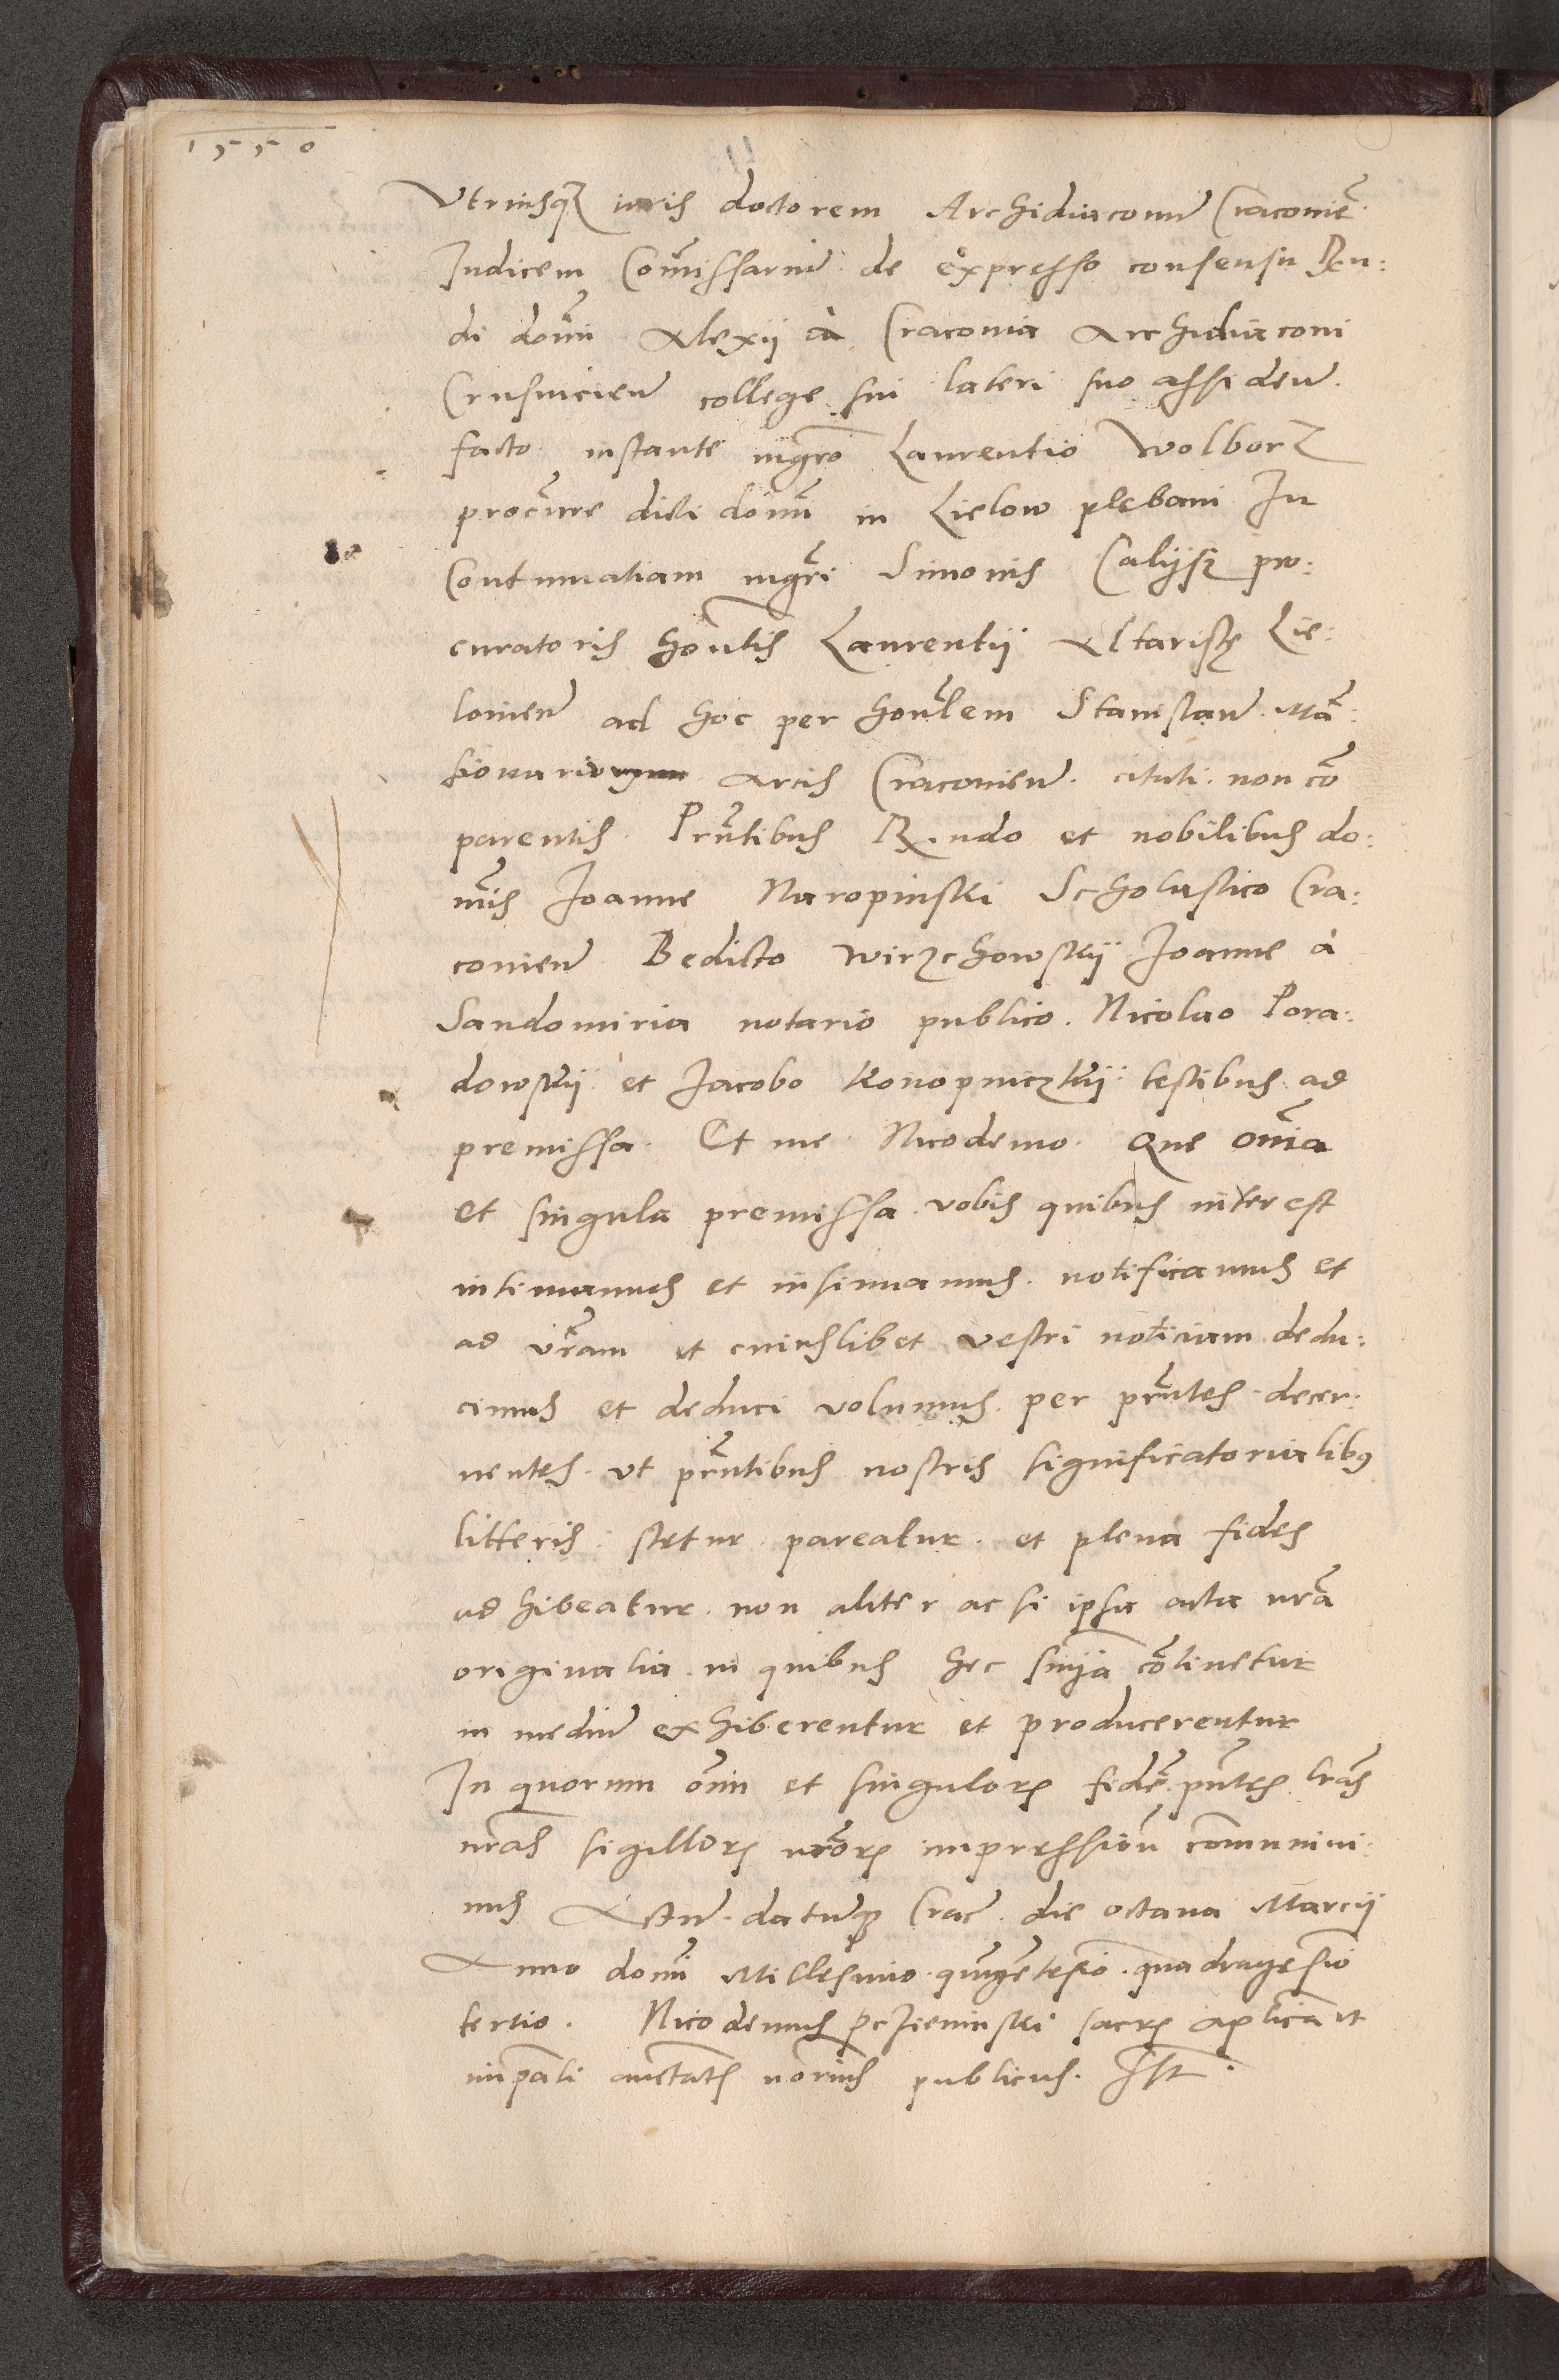 1550
Vtriusq iuris doctorem Archidiaconũ Cracoviẽ.
Iudicem Com̃issariũ de expresso consensu Reu:
di dom̃i Alexii à Cracovia Archidiaconi
Crusvicien̄ college sui lateri suo assiden̄.
facto instante mgr̃o Laurentio Wolborz
procur̃e dicti domĩ in Lielow plebani In
Contumatiam mgr̃i Simonis Calijsz pro:
curatoris hon̄lis Laurentii Altaristę Lie:
lovien̄ ad hoc per hon̄lem Stanislaũ. Mã:
sionariorum arcis Cracovien̄. citati. non cõ
parentis. Pñtibus R.ndo et nobilibus do:
m̃is Joanne Naropinski Scholastico Cra:
covien̄ Bedicto Wirzchowskij Joanne à
Sandomiria notario publico. Nicolao Pora:
dowskij et Jacobo Konopniczkij: testibus ad
premissa. Et me Nicodemo. Que om̃ia
et singula premissa. vobis quibus interest
intimamus et insinuamus. notificamus et
ad vr̃am et cuiuslibet vestri noticiam dedu:
cimus et deduci volumus. per pñtes. decer:
nentes. vt pñtibus nostris significatorialibꝰ
litteris. stetur pareatur. et plena fides
adhibeatur. non aliter ac si ipsa acta nr̃a
originalia. in quibus hec sm̃ia cõtinetur
in mediũ exhiberentur et producerentur
In quorum om̃i et singulorꝝ fidẽ. pñtes. lr̃as
nr̃as sigillorꝝ nr̃orꝝ impressioñ com̃univi:
mus Actũ. datũq Crac̃. die octava Marcij
Anno domĩ Millesimo. quĩgẽtesiõ. quadragesiõ
tertio. Nicodemus sacrꝭ aplica et
impali auctatꝭ nor̃ius publicus. sst.